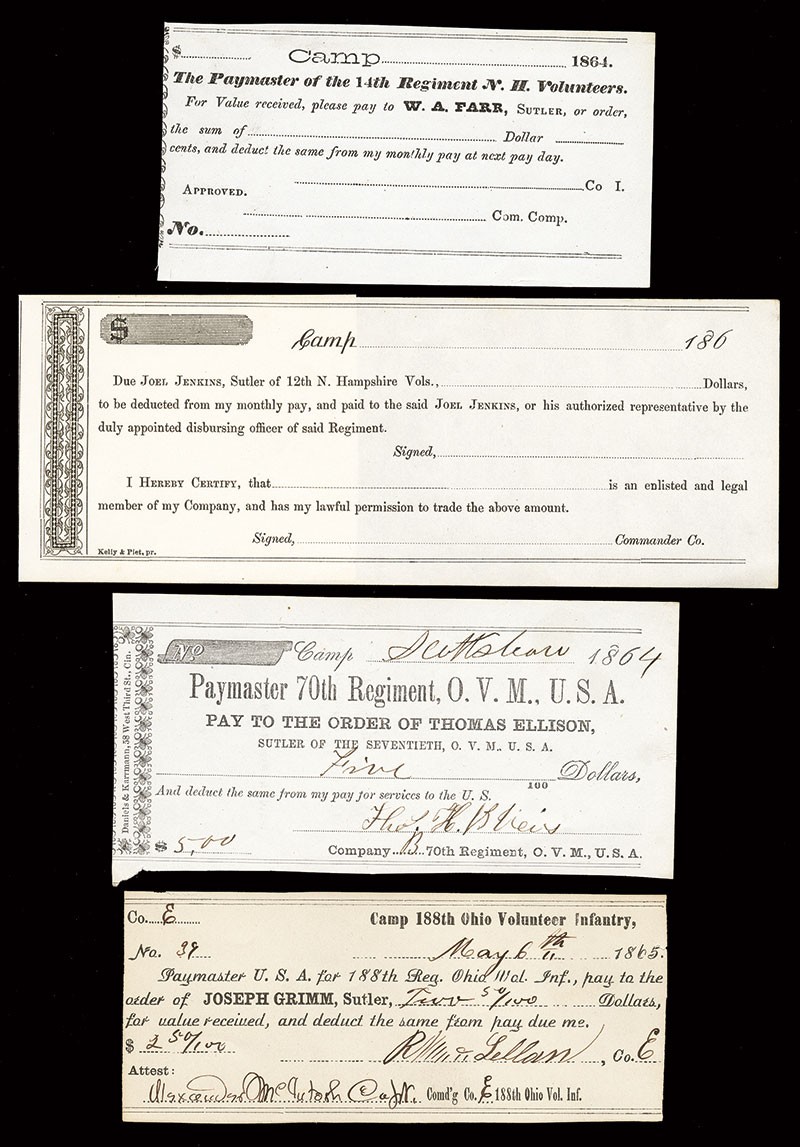 $ Camp 1864.
The Paymaster of the 14th Regiment N. H. Volunteers.
For Value received, please pay to W. A. FARR, SUTLER, or order,
the sum of Dollar
cents, and deduct the same from my monthly pay at next pay day.
Co I.
APPROVED.
Com. Comp.
No.
$ Camp 186
Due JOEL JENKINS, Sutler of 12th N. Hampshire Vols., Dollars,
to be deducted from my monthly pay, and paid to the said JOEL JENKINS, or his authorized representative by the
duly appointed disbursing officer of said Regiment.
Signed,
I HEREBY CERTIFY, that is an enlisted and legal
member of my Company, and has my lawful permission to trade the above amount.
Signed, Commander Co.
Kelly & Piet, pr.
Daniels & Karrmann, 58 West Third St., Cin.
No Camp 1864
Paymaster 70th Regiment, O. V. M., U. S. A.
PAY TO THE ORDER OF THOMAS ELLISON,
SUTLER OF THE SEVENTIETH, O. V. M., U. S. A.
Five
100 Dollars,
And deduct the same from my pay for services to the U. S.
Thos. H.
$ 5,00
Company B 70th Regiment, O. V. M., U. S. A.
Co. E Camp 188th Ohio Volunteer Infantry,
No. 39 May 6th 1865.
Paymaster U. S. A. for 188th Reg. Ohio Vol. Inf., pay to the
order of JOSEPH GRIMM, Sutler, Two 50/100 Dollars,
for value received, and deduct the same from pay due me.
$ 2 50/100 Co. E
Attest:
Alexander McIntosh Capt. Comd'g Co. E 188th Ohio Vol. Inf.